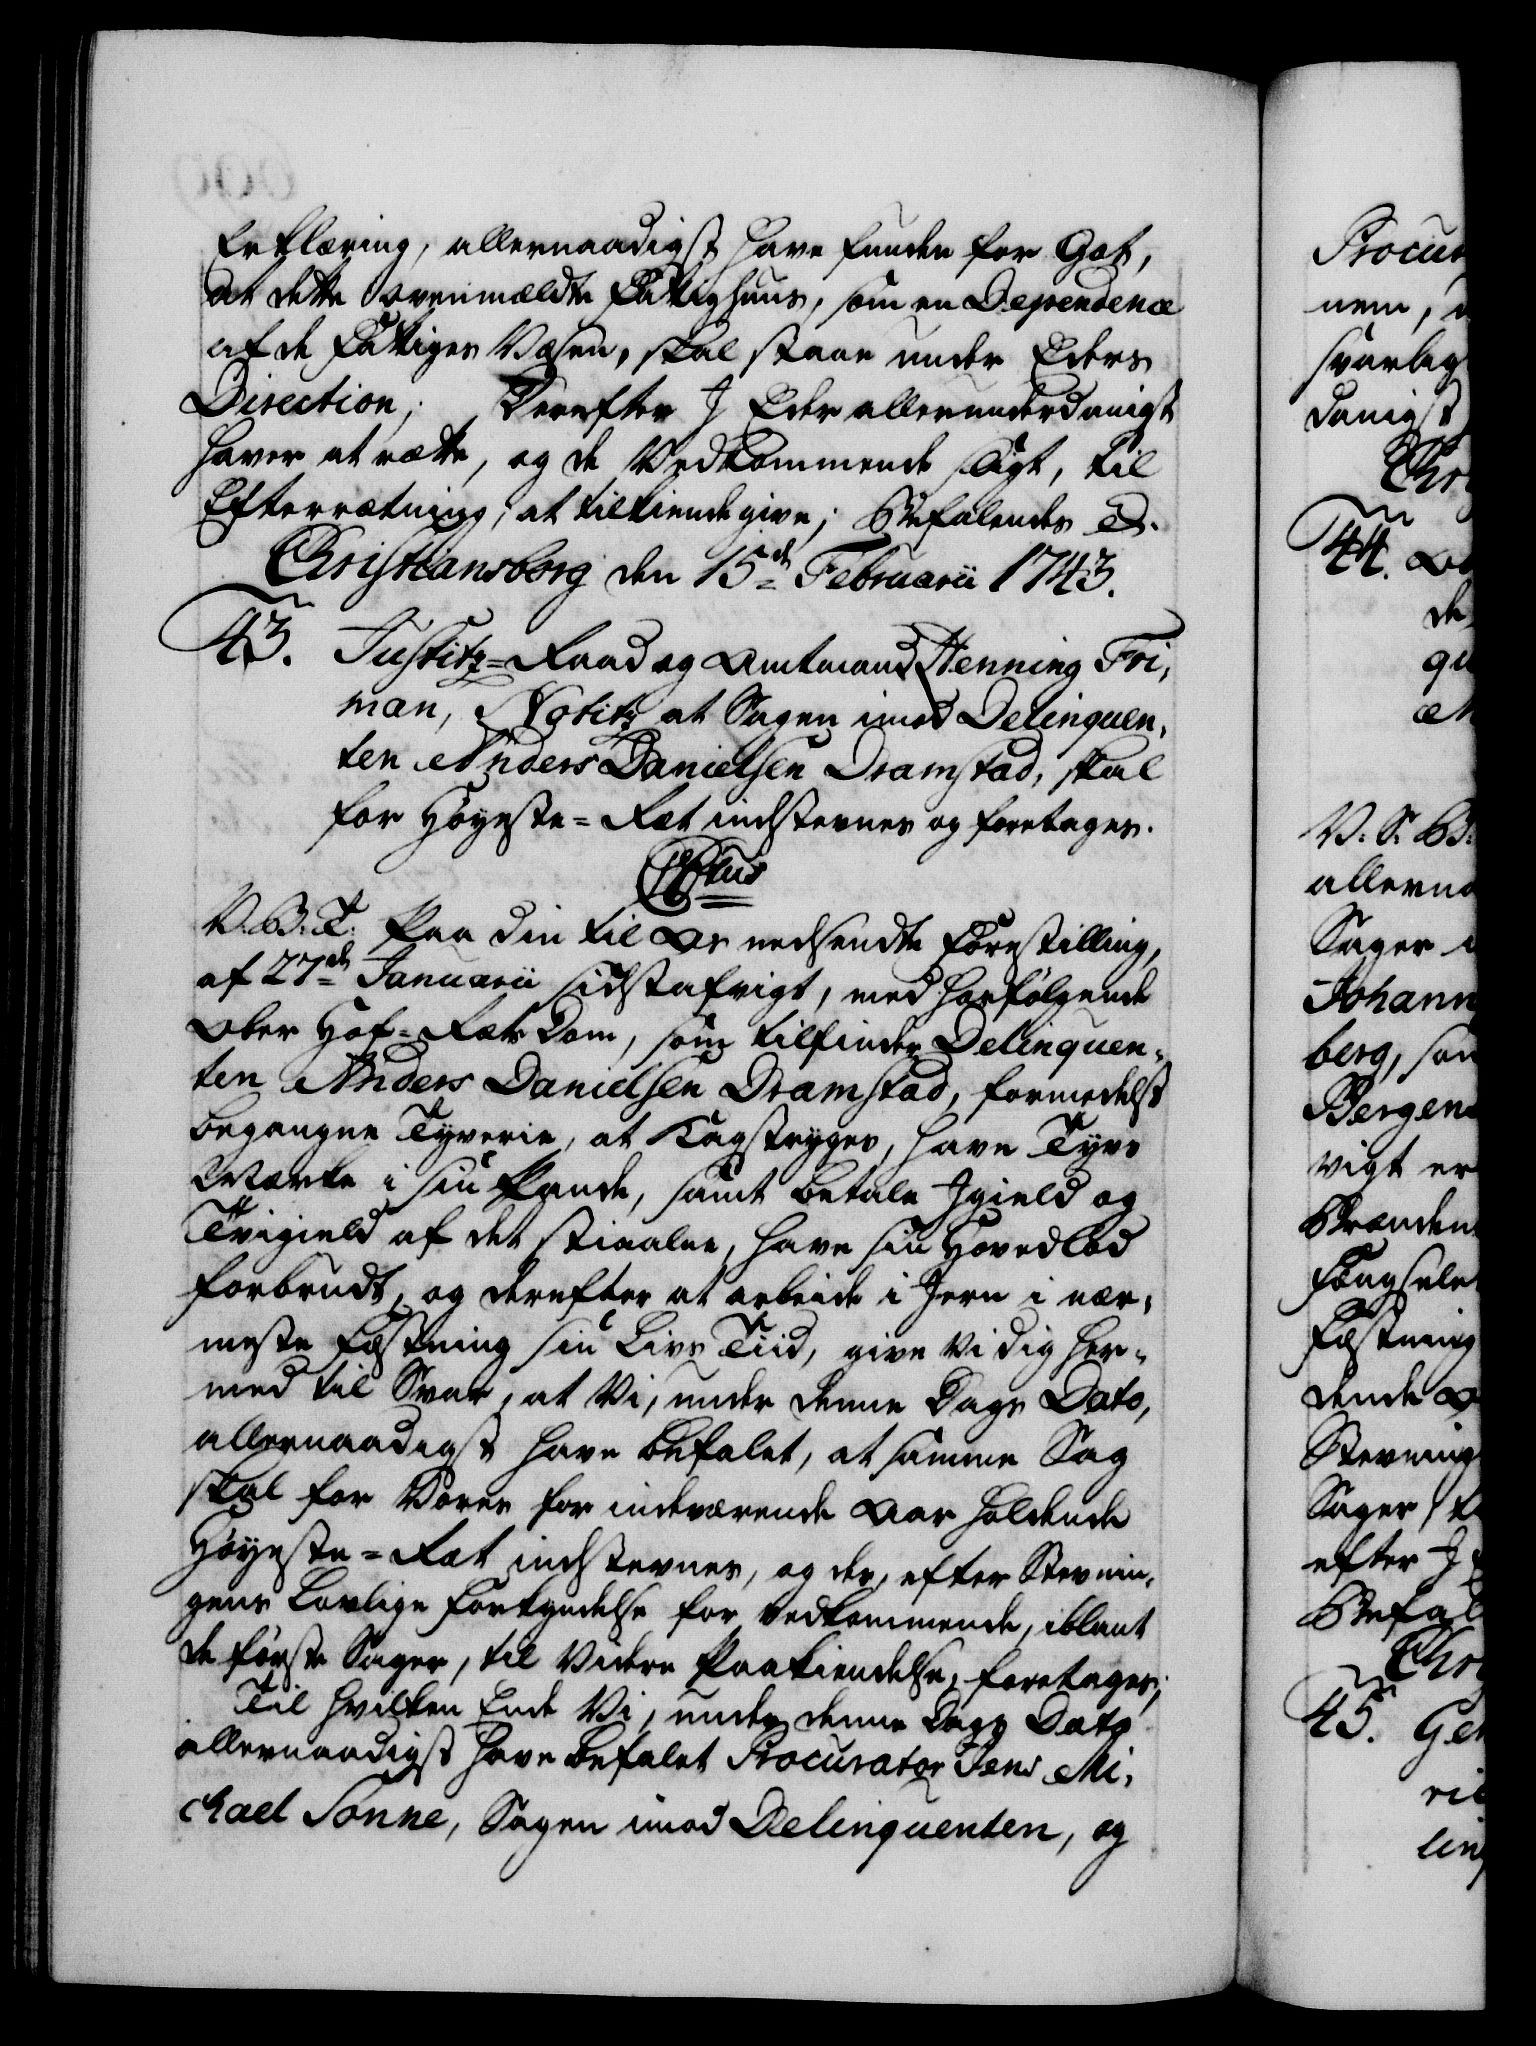 Erklæring, allernaadigst have funden for Got,
at dette ovenmældte Fattighuus, som en Dependence
af de Fattiges Væsen, skal staae under Eders
Direction; Derefter I Eder allerunderdanigst
haver at rette, og de Vedkommende sligt, til
Efterretning, at tilkiendegive; Befalendes &.
Christiansborg den 15de Februarii 1743.
43. Justitz-Raad og Amtmand Henning Fri-
man, Notitz at Sagen imod Delinquen-
ten Anders Danielsen Dramstad, skal
for Høyeste-Ræt indstevnes og foretages.
C Ptus
V. B. T. Paa din til Os nedsendte Forestilling,
af 27de Januarii sidstafvigt, med hosfølgende
Ober Hof-Rets Dom, som tilfinder Delinquen-
ten Anders Danielsen Dramstad, formedelst
begangne Tyverie, at Kagstryges, have Tyvs
Mærke i sin Pande, samt betale Igield og
Tvigield af det stiaalne, have sin Hovedlod
forbrudt, og derefter at arbeide i Jern i nær-
meste Fæstning sin Livs Tiid, give Vi dig her-
med til Svar, at Vi, under denne Dags Dato,
allernaadigst have befalet, at samme Sag
skal for Vores for indeværende Aar holdende
Høyeste-Ræt indstevnes, og der, efter Stevnin-
gens Lovlige Forkyndelse for vedkommende, iblant
de første Sager, til Videre Paakiendelse, foretages;
Til hvilken Ende Vi, under denne Dags Dato
allernaadigst have befalet Procurator Jens Mi-
chael Sonne, Sagen imod Delinquenten, og
Procur
nem, 
svarlig
danigst
Chr
44. 
de
V. S. B.
allerna
Sager i
Johann
berg, som
Bergen
vigt er
Brænden
Fængsele
Fæstning
dende
Stevning
Sager
efter I
Befal
Chr
45. Gen